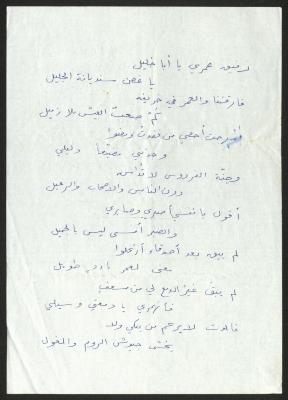 رفيق عمري يا أبا خليل
يا غصن سنديانة الجليل
فارقتنا والعمر في خريفه
كم صعب العيش بلا زميل
أحصي من فقدت
وحدتي
وجنة الفردوس لا تُؤنس
دون الناس والأصحاب والرعيل
أقول يا نفسي اصبري وصابري
والصبر أمسى ليس بالجميل
لم يبق بعد أصدقاء أرتحلوا
معنى لعمر بارد طويل
لم يبق غير الدمع لي من مسعف
فانهمري يا دمعتي وسيلي
فالموت لا يرحم من يبكي ولا
يخشى جيوش الروم والمغول